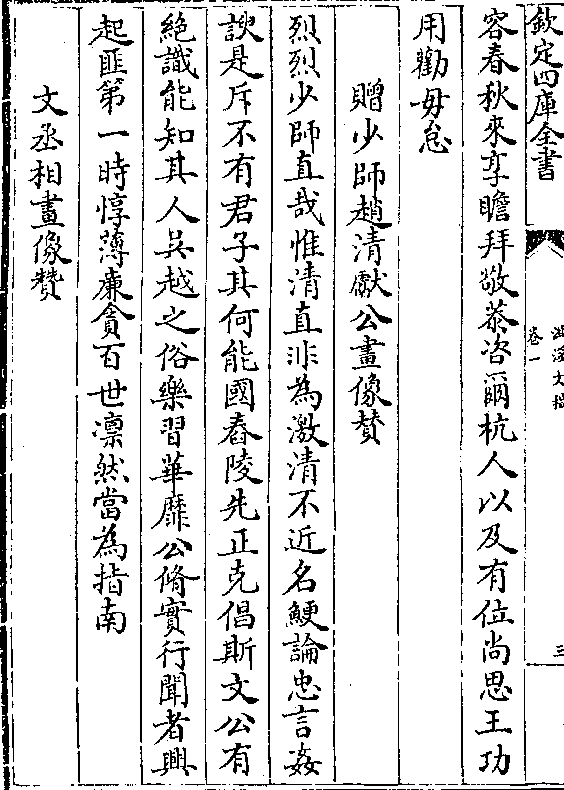 欽定四庫全書
卷一
三
容春秋來享瞻拜敬恭咨爾杭人以及有位尚思王功
用勸毋怠
贈少師趙清獻公畫像贊
烈烈少師直哉惟清直非為激清不近名鯁論忠言姦
諛是斥不有君子其何能國舂陵先正克倡斯文公有
絕識能知其人吳越之俗樂習華靡公脩實行聞者興
起匪第一時惇薄廉貪百世凛然當為指南
文丞相畫像贊